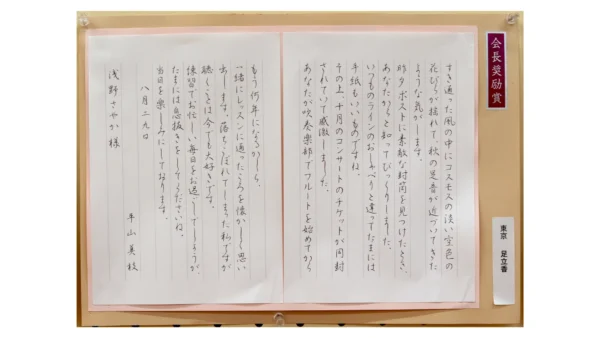 会長奨励賞
東京 足立香
すき透った風の中にコスモスの淡い空色の
花びらが揺れて、秋の足音が近づいてきた
ような気がします。
夕方ポストに素敵な封筒を見つけたとき、
あなたからと知ってびっくりしました。
いつものラインのおしゃべりと違ってたまには
手紙もいいものですね。
その上、十月のコンサートのチケットが同封
されていて感激しました。
あなたが吹奏楽部でフルートを始めてから
もう何年になるかしら。
一緒にレッスンに通ったころを懐かしく思い
出します。落ちこぼれてしまった私ですが
聴くことは今でも大好きです。
練習でお忙しい毎日をお過ごしでしょうが、
たまには息抜きをしてくださいね。
当日を楽しみにしております。
八月二九日
平山美枝
浅野さやか様